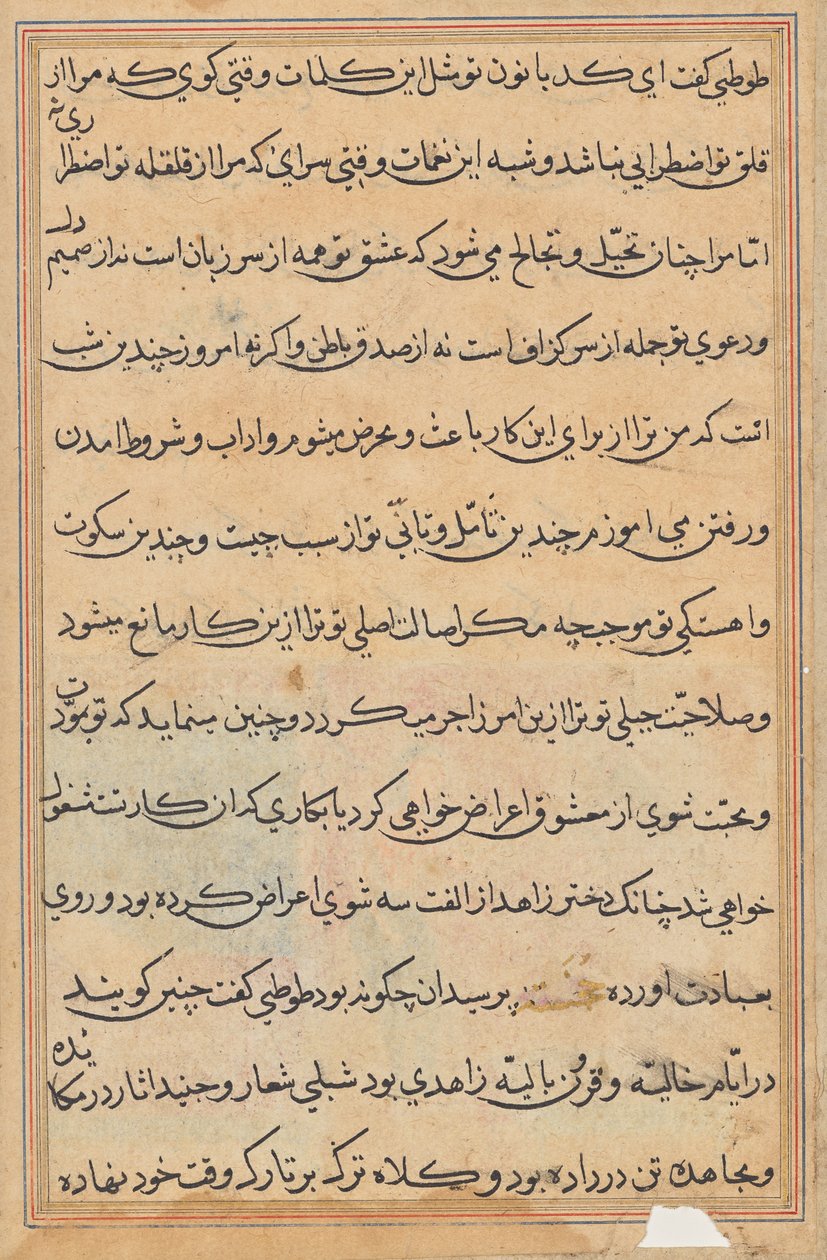 طوطي كفت اي كد بانون تو مثل اين كلمات وقتي كوي كه مرا از
قلق تو اضطرابي نباشد و شبه اين نغمات وقتي سراي كه مرا از قلقله تو اضطرا
اما مرا چنان تخيّل و تجالح مي شود كه عشق تو همه از سر زبان است نه از صميم دل
و دعوي تو جمله از سر كزاف است نه از صدق باطن و اكر نه امروز چندين شب
است كه من ترا از براي اين كار باعث و محرض ميشوم و اداب و شروط امدن
و رفتن مي اموزم چندين تأمّل و تأنّي تو از سبب چيست و چندين سكوت
و اهستكي تو موجب چه مكر اصالت اصلي تو ترا ازين كار مانع ميشود
و صلاحيّت جبلي تو ترا ازين امر زاجر ميكردد و چنين مينمايد كه تو بمودّت
و محبّت شوي از معشوق اعراض خواهي كرد يا بكاري كه ان كار تست مشغول
خواهي شد چنانك دختر زاهد از الفت سه شوي اعراض كرده بود و روي
بعبادت اورده خجسته پرسيد ان چكونه بود طوطي كفت چنين كويند
در ايّام خاليه و قرون باليّه زاهدي بود شبلي شعار و جنيد اثار در مكابده
و مجاهده تن در داده بود و كلاه ترك بر تارك وقت خود نهاده